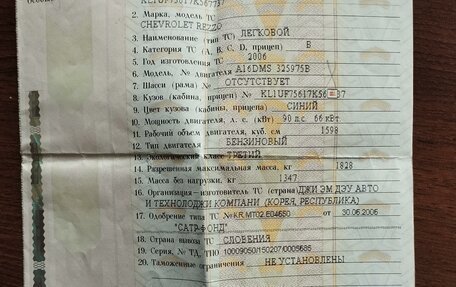 Особые
2. Марка, модель ТС
CHEVROLET REZZO
3. Наименование (тип ТС) ЛЕГКОВОЙ
4. Категория ТС (А, В, С, D, прицеп) B
5. Год изготовления ТС 2006
6. Модель, № двигателя A16DMS 325975B
7. Шасси (рама) № ОТСУТСТВУЕТ
8. Кузов (кабина, прицеп) № KL1UF75617K56 37
9. Цвет кузова (кабины, прицепа) СИНИЙ
10. Мощность двигателя, л. с. (кВт) 90 л.с. 66 кВт
11. Рабочий объем двигателя, куб. см 1598
12. Тип двигателя БЕНЗИНОВЫЙ
13. Экологический класс ТРЕТИЙ
14. Разрешенная максимальная масса, кг 1828
15. Масса без нагрузки, кг 1347
16. Организация—изготовитель ТС (страна) ДЖИ ЭМ ДЭУ АВТО
И ТЕХНОЛОДЖИ КОМПАНИ (КОРЕЯ, РЕСПУБЛИКА)
17. Одобрение типа ТС № KR.MT02.E04650 от 30.06.2006
"САТР-ФОНД"
18. Страна вывоза ТС СЛОВЕНИЯ
19. Серия, № ТД, ТПО 10009050/150207/0005685
20. Таможенные ограничения НЕ УСТАНОВЛЕНЫ